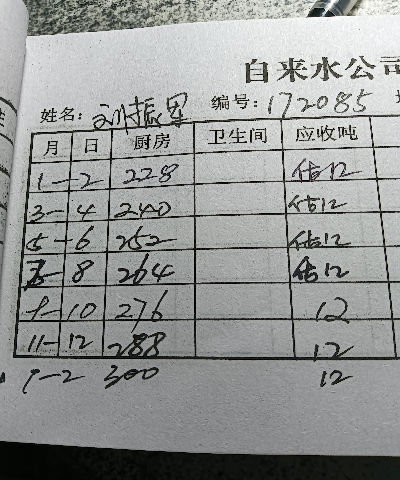 自来水公司
姓名: 刘振军 编号: 172085
月 日 厨房 卫生间 应收吨
1-2 228 估12
3-4 240 估12
5-6 252 估12
7-8 264 估12
9-10 276 12
11-12 288 12
1-2 300 12